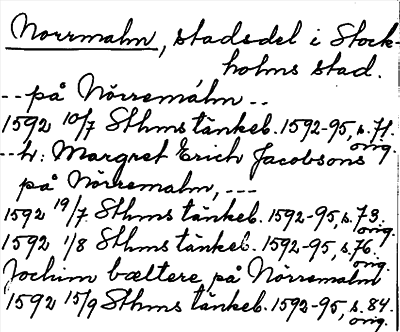 Norrmalm, stadsdel i Stock-
holms stad.
-- på Nörremálm --
1592 10/7 Sthms tänkeb. 1592-95, s. 71.
orig.
-- h: Margret Erich Jacobsons
på Nörremalm, ---
1592 19/7 Sthms tänkeb. 1592-95, s. 73.
orig.
1592 1/8 Sthms tänkeb. 1592-95, s. 76.
orig.
Jochim bæltere på Nörremalm
1592 15/9 Sthms tänkeb. 1592-95, s. 84.
orig.